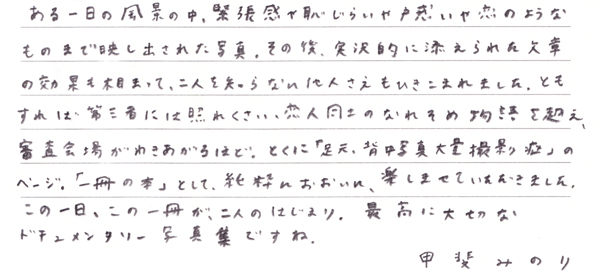 ある一日の風景の中、緊張感や恥じらいや戸惑いや恋のような
ものまで映し出された写真。その後、実況的に添えられた文章
の効果も相まって、二人を知らない他人さえもひきこまれました。とも
すれば第三者には照れくさい、恋人同士のなれそめ物語を超え、
審査会場がわきあがるほど。とくに「足元、背中写真大量撮影症」の
ページ。「一冊の本」として、純粋におおいに、楽しませていただきました。
この一日、この一冊が、二人のはじまり。最高に大切な
ドキュメンタリー写真集ですね。
甲斐みのり